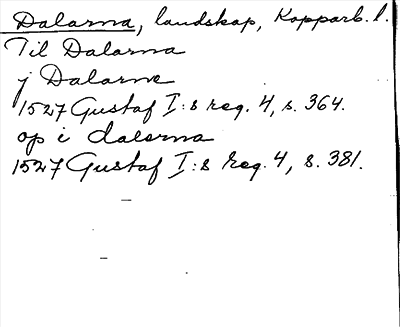 Dalarna, landskap, Kopparb. l.
Til Dalarna
j Dalarne
1527 Gustaf I:s reg. 4, s. 364.
op i dalerna
1527 Gustaf I:s reg. 4, s. 381.